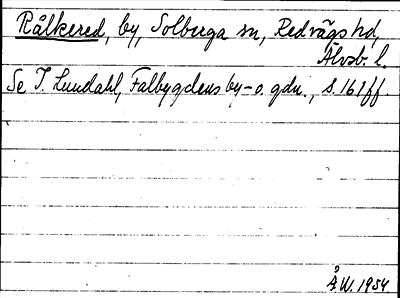 Rålkered, by, Solberga sn, Redvägs hd,
Älvsb. l.
Se I. Lundahl, Falbygdens by- o. gdn., s. 161 ff.
Å.W. 1954